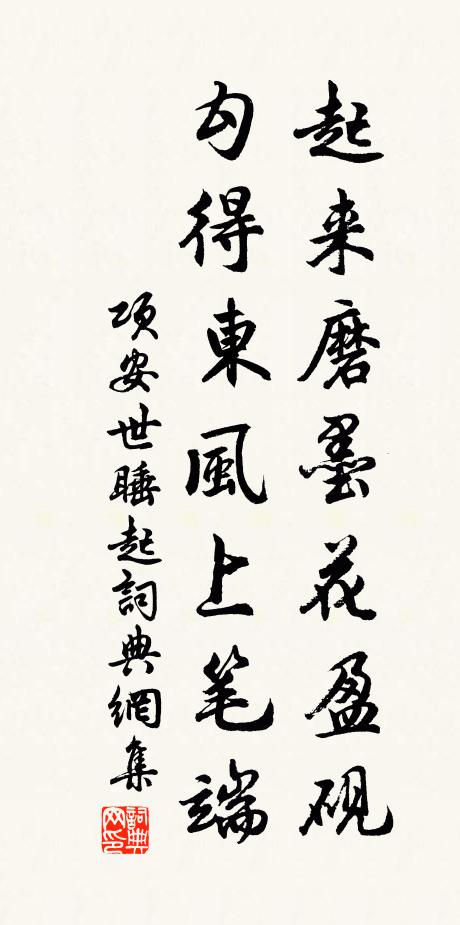 起来磨墨花盈砚
勾得東風上笔端
项安世睡起詞典網集
詞典网印